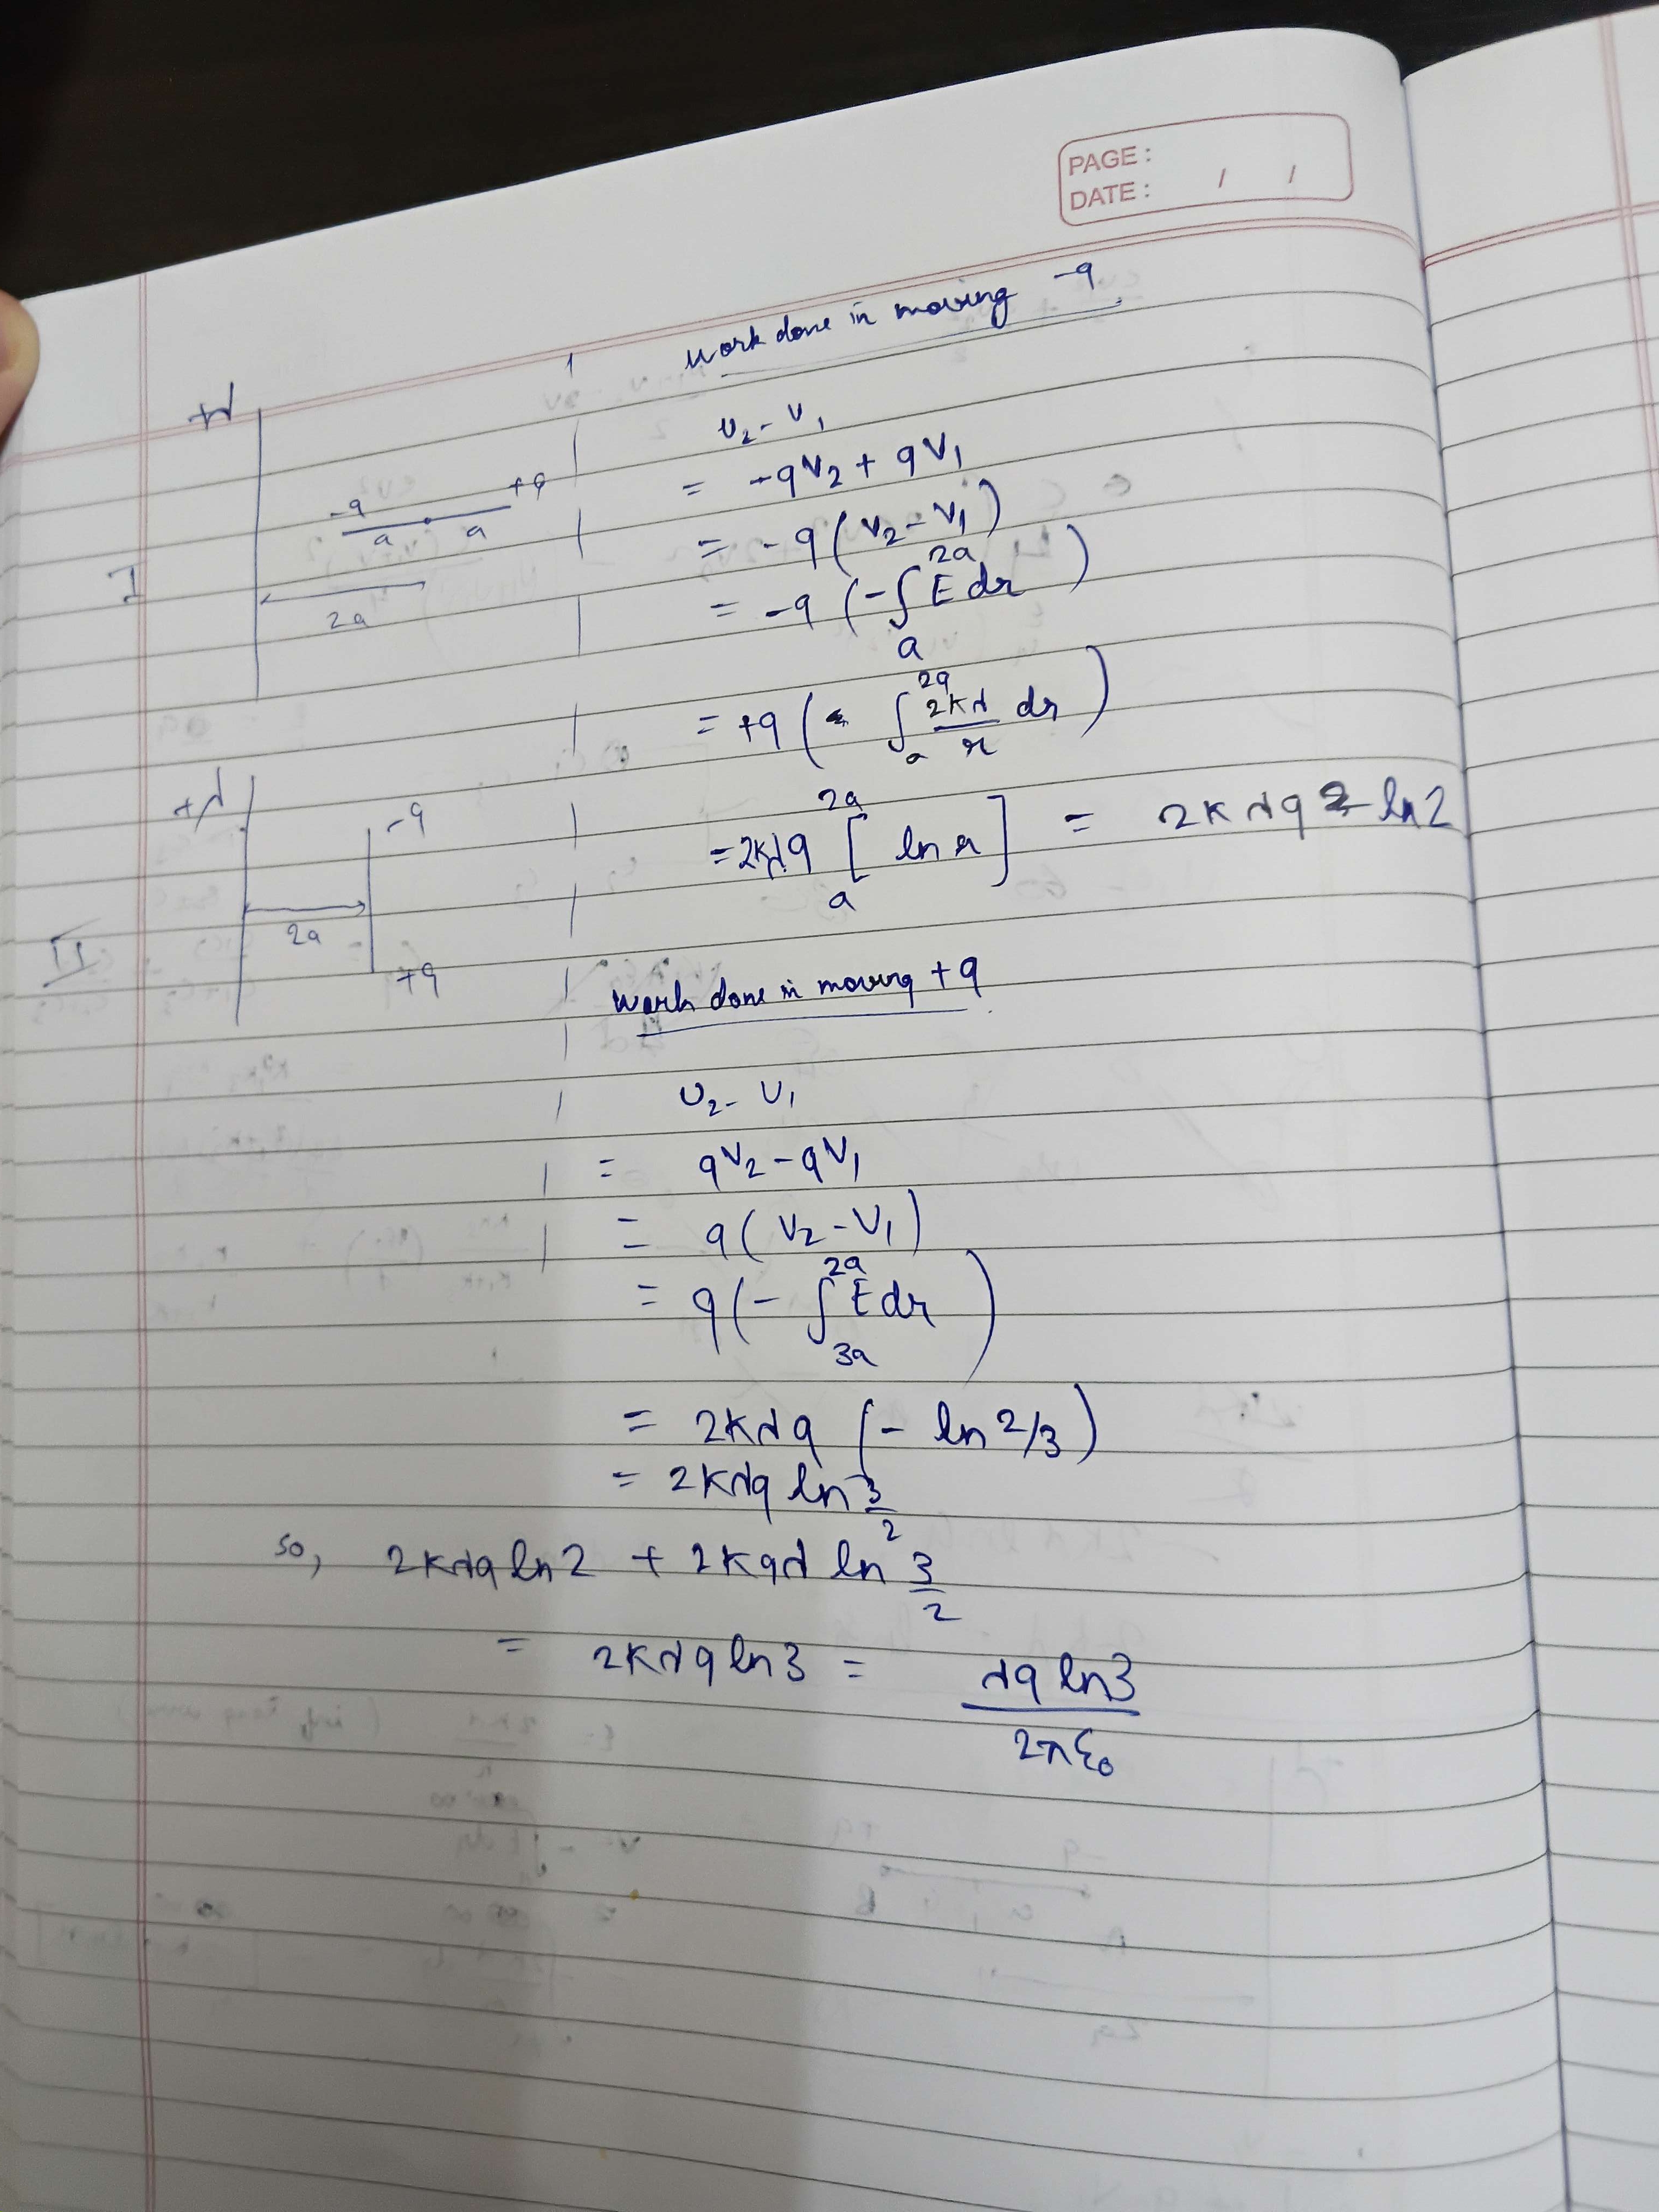 PAGE :
DATE : / /
Work done in moving -q
+λ
U₂ - U₁
= -qV₂ + qV₁
-q +q
a a
= -q (V₂ - V₁)
I
2a
= -q (-∫ₐ²ᵃ E dr)
= +q (∫ₐ²ᵃ 2Kλ/r dr)
+λ
-q
= 2Kλq [ln r]ₐ²ᵃ = 2Kλq ln2
2a
II
+q
Work done in moving +q
U₂ - U₁
= qV₂ - qV₁
= q (V₂ - V₁)
= q (-∫₃ₐ²ᵃ E dr)
= 2Kλq (- ln 2/3)
= 2Kλq ln 3/2
so, 2Kλq ln2 + 2Kqλ ln 3/2
= 2Kλq ln3 = λq ln3 / 2πε₀